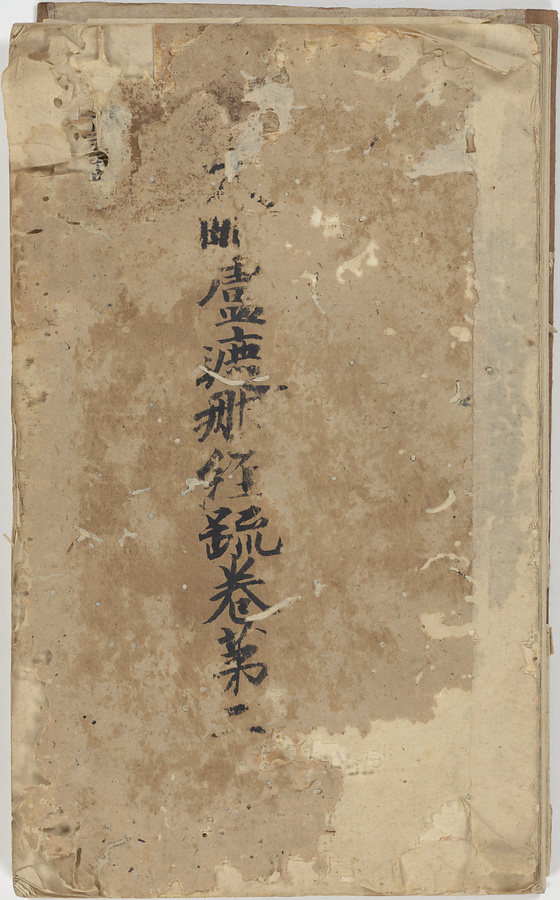 大毗盧遮那經疏卷第二